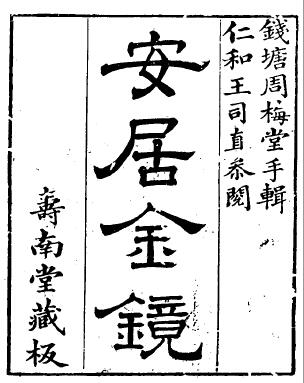 錢塘周梅堂手輯
仁和王司直叅閱
安居金鏡
壽南堂藏板